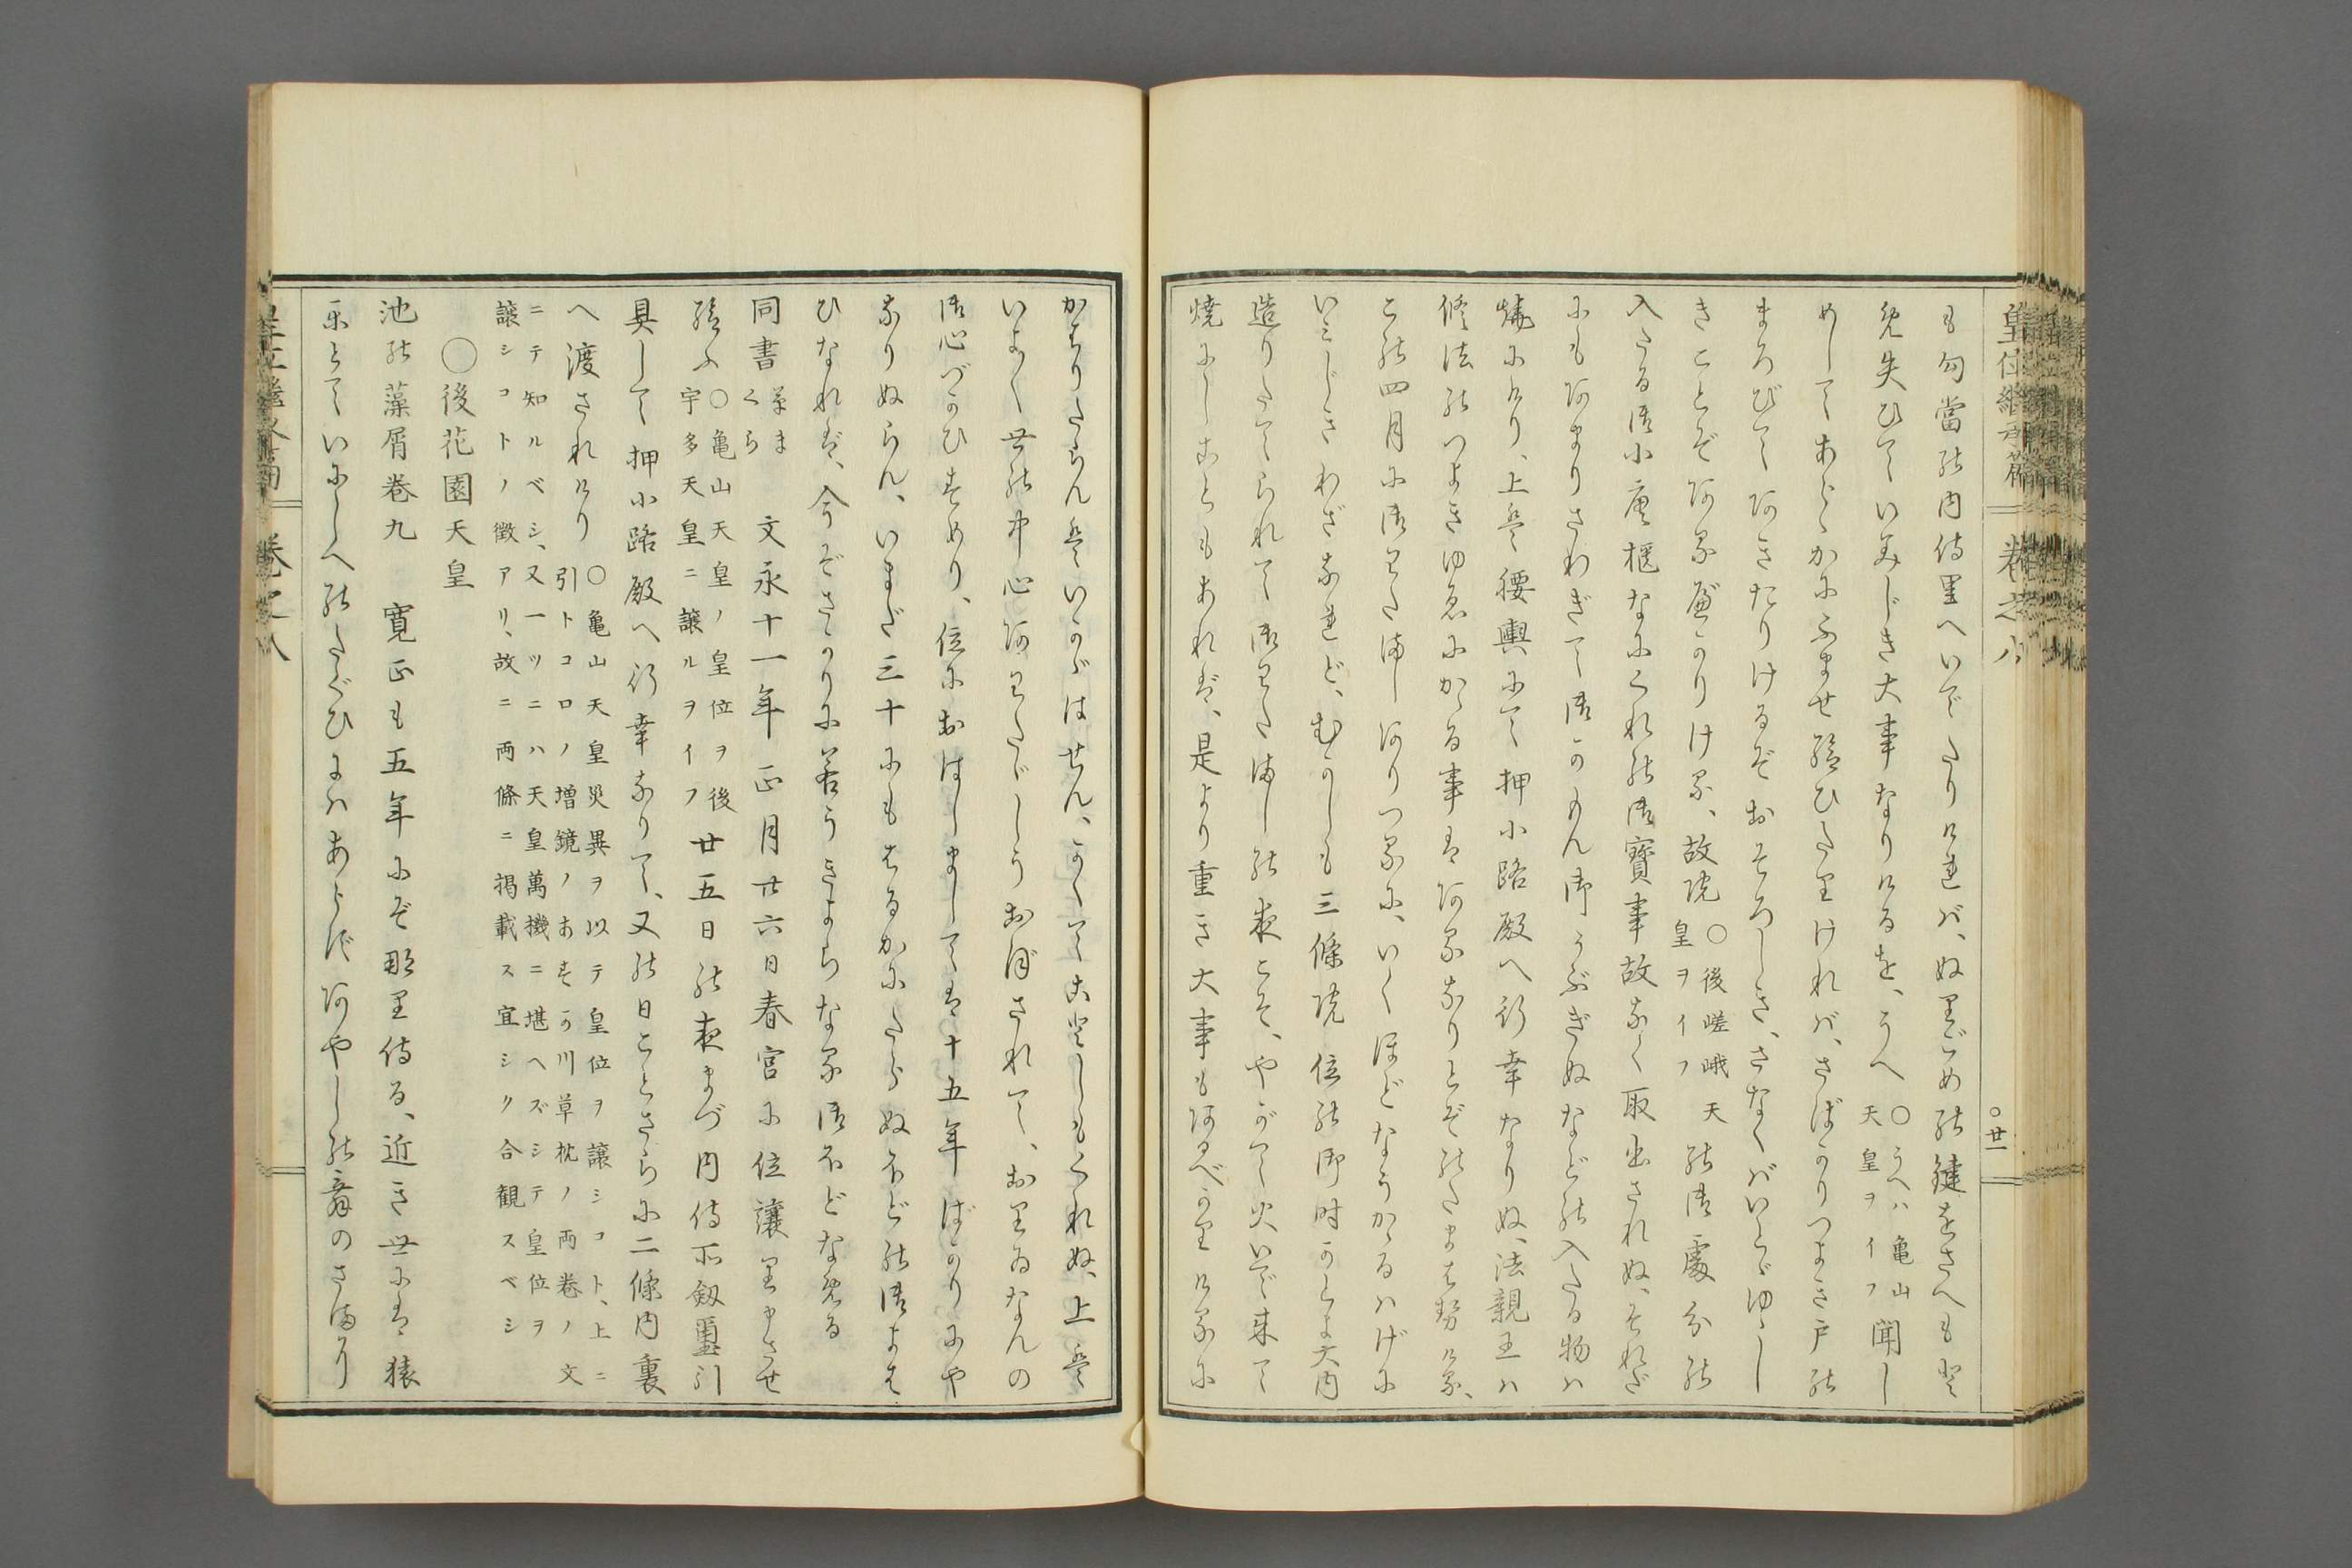 皇位継承篇　卷之八　○廿一
も勾當の内侍里へいでたりければ、ぬりごめの鍵をさへもと
め失ひていみじき大事なりけるを、うへ○うへハ亀山天皇ヲイフ聞し
めしてあらゝかにふませ給ひたりければ、さばかりつよき戸の
まろびてあきたりけるぞおそろしき、さなくばいとゞゆゝし
きことぞあるべかりける、故院○後嵯峨天皇ヲイフの御處分の
入たる御小唐櫃なにくれの御寶事故なく取出されぬ、それだ
にもあまりさわぎて御かもん御うぶぎぬなどの入たる物ハ
燒にけり、上は腰輿にて押小路殿へ行幸なりぬ、法親王ハ
修法のつよきゆゑにかゝる事はあるなりとぞのたまはせける、
この四月に御わたましありつるに、いくほどなうかゝるハげに
いみじきわざなれど、むかしも三條院位の御時かとよ大内
造りたてられて御わたましの夜こそ、やがて火いで来て
燒にしこともあれば、是より重き大事もあるべかりけるに
かはりたらんはいかゞはせん、かくてことしもくれぬ、上は
いよ〱世の中心あわたゞしうおぼされて、おりゐなんの
御心づかひすめり、位におはしましては十五年ばかりにや
なりぬらん、いまだ三十にもはるかにたらぬほどの御よは
ひなれば、今ぞさかりに若うきよらなる御ほどなめる
同書草まくら　文永十一年正月廿六日春宮に位讓りまうさせ
給ふ○亀山天皇ノ皇位ヲ後宇多天皇ニ譲ルヲイフ廿五日の夜まづ内侍所劔璽引
具して押小路殿へ行幸なりて、又の日ことさらに二條内裏
へ渡されけり○亀山天皇災異ヲ以テ皇位ヲ譲シコト、上ニ引トコロノ増鏡ノあすか川草枕ノ両巻ノ文
ニテ知ルベシ、又一ツニハ天皇萬機ニ堪ヘズシテ皇位ヲ譲シコトノ徴アリ、故ニ両條ニ掲載ス宜シク合観スベシ
○後花園天皇
池の藻屑巻九　寛正も五年にぞ那り侍る、近き世には猿
樂とていにしへのたぐひにハあらずあやしの舞のさまなり
卷之八